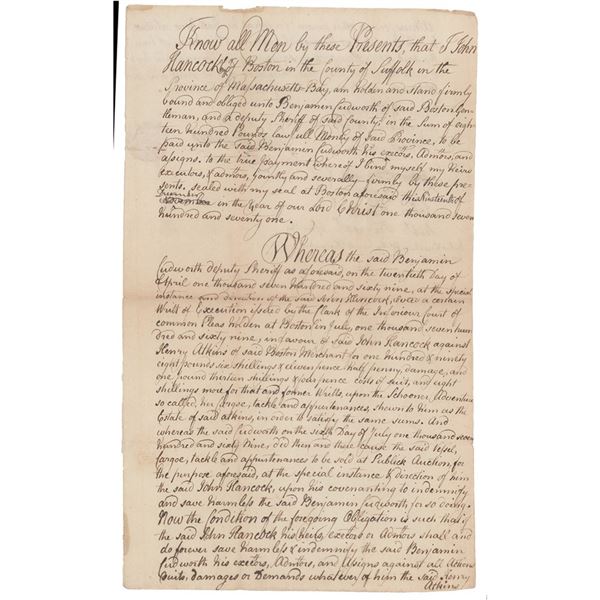 Know all Men by these Presents, that I John
Hancock of Boston in the County of Suffolk in the
Province of Massachusetts-Bay, am holden and stand firmly
bound and obliged unto Benjamin Cudworth of said Boston Gen-
tleman, and a deputy Sheriff of said county, in the Sum of eigh-
teen hundred Pounds lawfull Money of said Province, to be
paid unto the said Benjamin Cudworth his exectors, Admtors, and
assigns: to the true payment whereof I bind myself my Heirs
executors, & admtors, joyntly and severally firmly by these pre-
sents. sealed with my seal at Boston aforesaid this
December
in the Year of our Lord Christ one thousand seven
hundred and seventy one.
Whereas the said Benjamin
Cudworth deputy Sheriff as aforesaid, on the twentieth Day of
April one thousand seven hundred and sixty nine, at the special
instance and direction of the said John Hancock, a certain
Writt of Execution issued by the Clark of the Inferiour Court of
common Pleas holden at Boston in July, one thousand seven hun
dred and sixty nine, in favour of said John Hancock against
Henry Atkins of said Boston Merchant for one hundred & ninety
eight pounds six shillings & eleven pence half penny, damage, and
one pound thirteen shillings & four pence costs of suit, and eight
shillings more for that and former Writts, upon the Schooner, Adventure
so called, her Cargoe, tackle and appurtenances, shewn to him as the
Estate of said Atkins, in order to satisfy the same sums. And
whereas the said Cudworth on the sixth Day of July one thousand seven
hundred and sixty Nine, did then and there cause the said Vessel,
Cargoe, tackle and appurtenances to be sold at Publick Auction, for
the purpose aforesaid, at the special instance & direction of him
the said John Hancock, upon his covenanting to indemnify
and save harmless the said Benjamin Cudworth, for so doing.
Now the Condition of the foregoing Obligation is such that if
the said John Hancock his heirs, exectors or admtors shall and
do forever save harmless & indemnify the said Benjamin
Cudworth his exectors, Admtors, and Assigns against all Actions
Suits, damages or Demands whatever of him the said Henry
Atkins